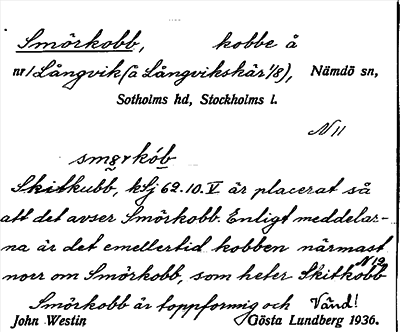 Smörkobb, kobbe å
nr 1 Långvik (å Långvikskär 1/8), Nämdö sn,
Sotholms hd, Stockholms l.
N 11
smǫrkób
Skitkubb, kSj 62.10.V är placerat så
att det avser Smörkobb. Enligt meddelar-
na är det emellertid kobben närmast
norr om Smörkobb, som heter Skitkobb N 12
Smörkobb är toppformig och Vänd!
John Westin Gösta Lundberg 1936.